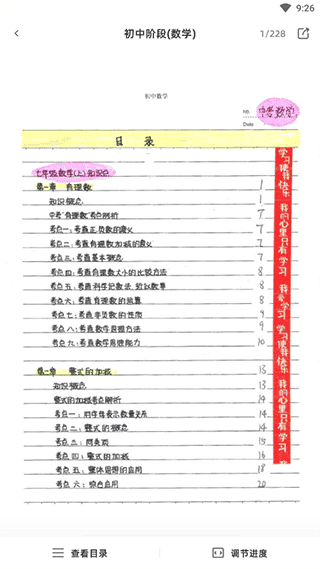 9:26
初中阶段(数学)
1/228
初中数学
No.
中考数学
Date
目 录
七年级数学(上)知识点
第一章 有理数 1
知识概念 1
中考"有理数"考点辨析 7
考点一:考查正负数的意义 7
考点二:考查有理数加减的意义 7
考点三:考查基本概念 7
考点四:考查有理数大小的比较方法 8
考点五:考查科学记数法 8
考点六:考查有理数的运算 8
考点七:考查非负数的性质 9
考点八:考查数学思想方法 9
考点九:考查数学思维能力 10
第二章 整式的加减 13
知识概念 13
整式的加减考点辨析 14
考点一:用字母表示数量关系 14
考点二:整式的概念 14
考点三:同类项 15
考点四:整式的加减 16
考点五:整体思想的应用 18
考点六:综合应用 20
学习使我快乐 我的心里只有学习 我爱学习 学习使我快乐 我的心里只有学习
查看目录
调节进度